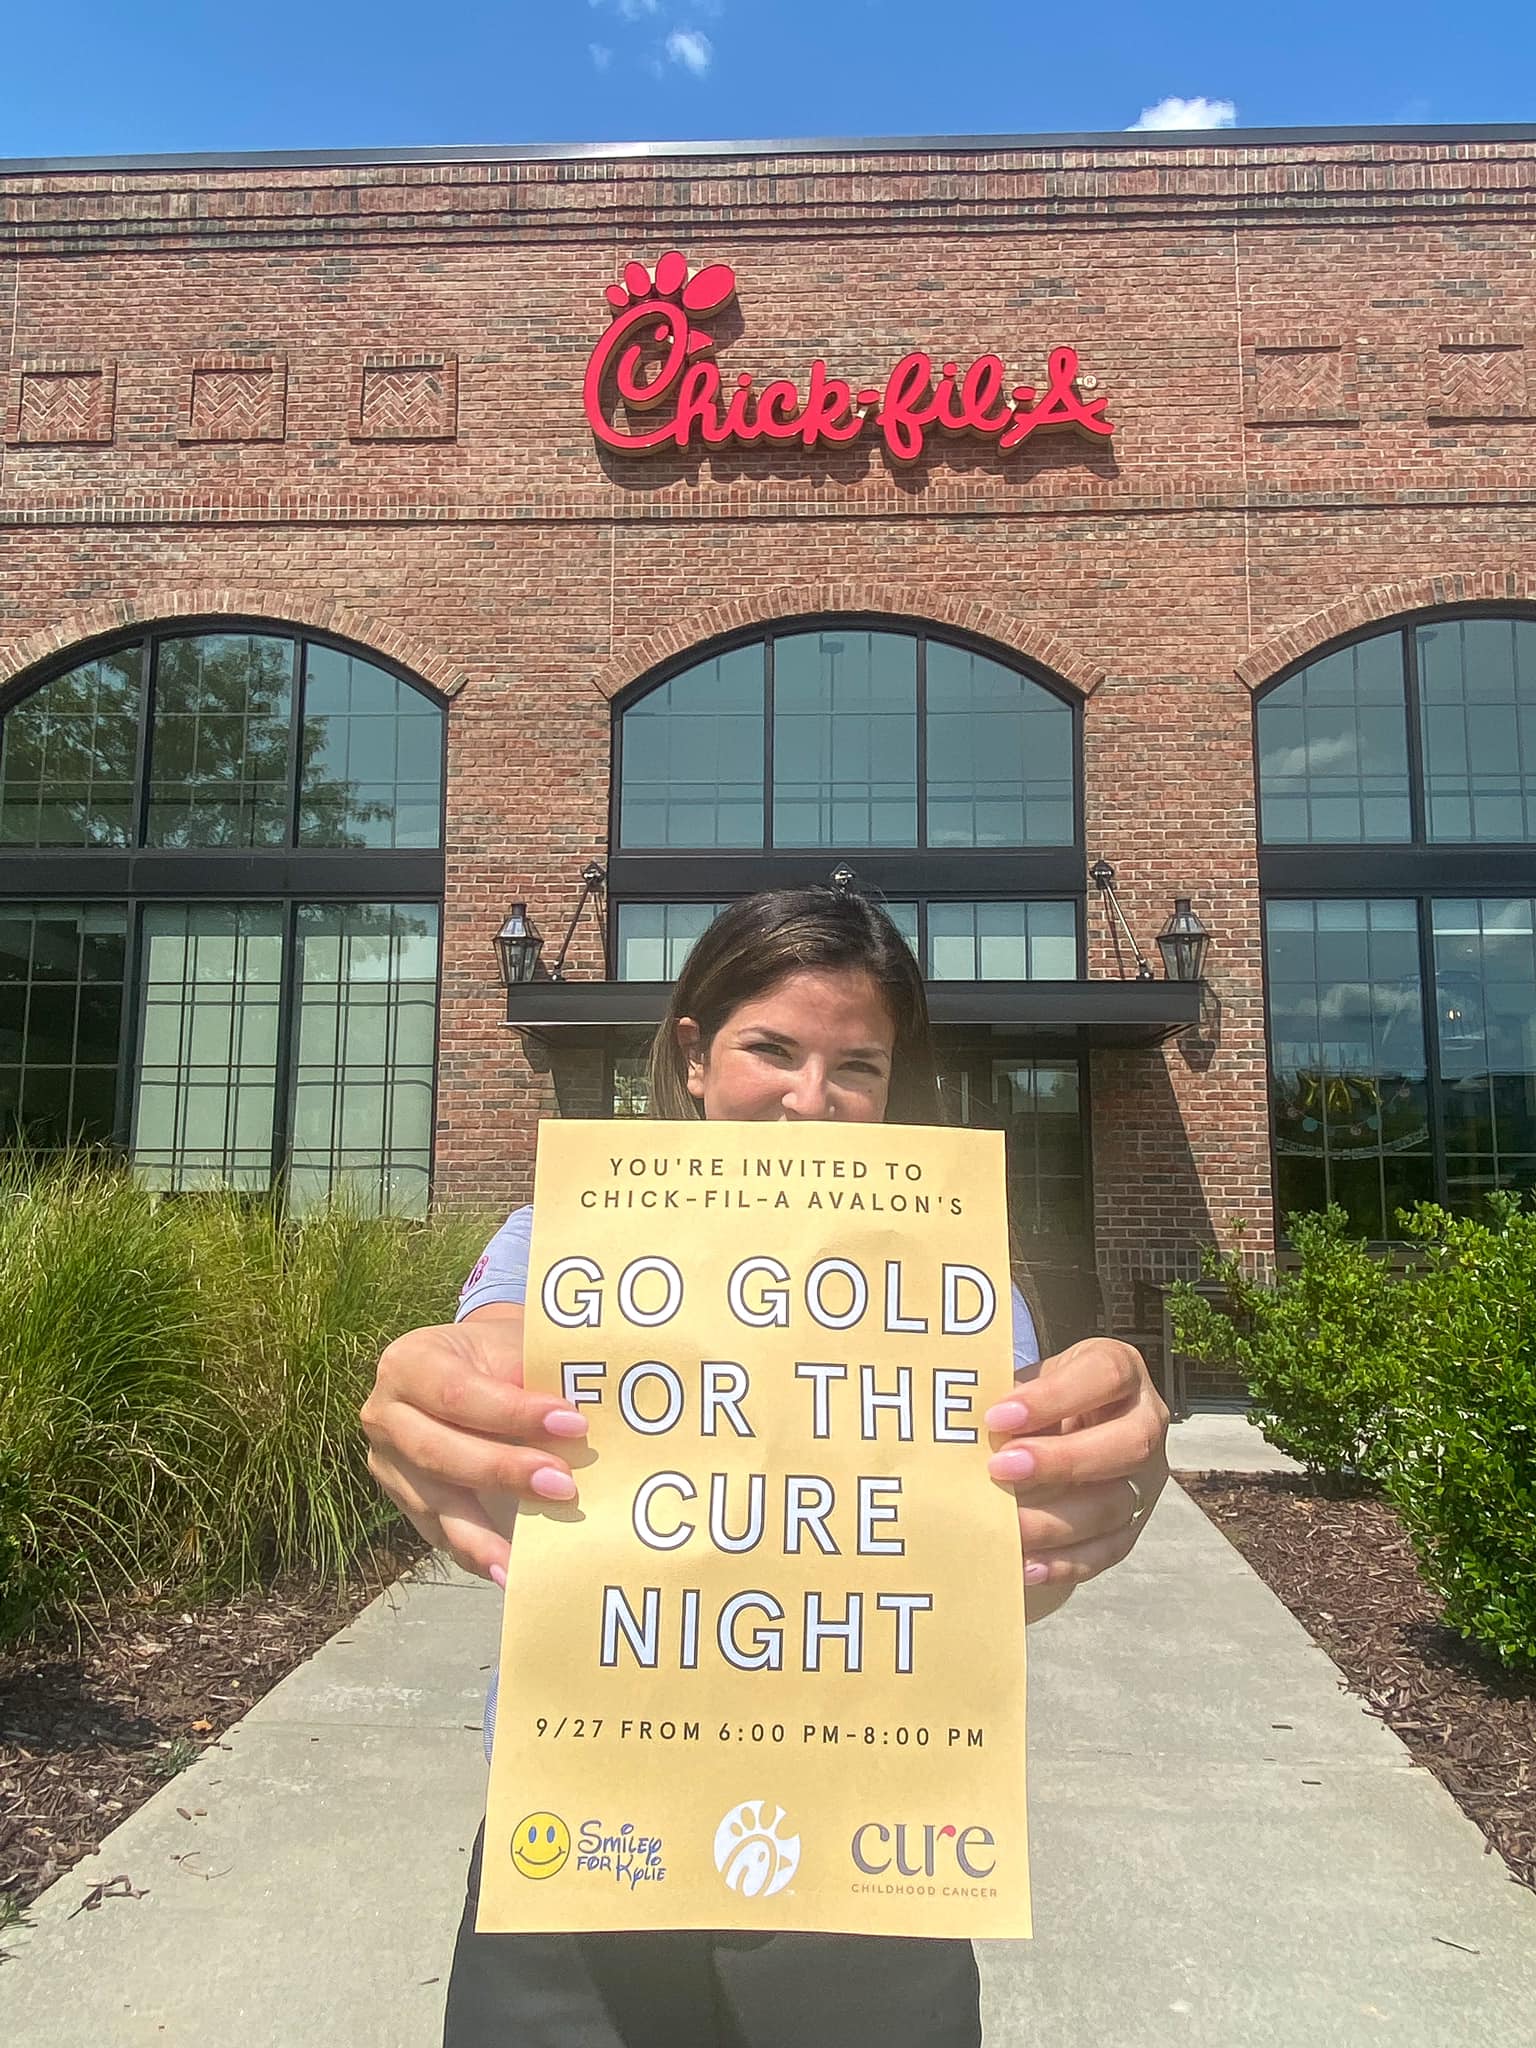 Chick-fil-A®
YOU'RE INVITED TO
CHICK-FIL-A AVALON'S
GO GOLD
FOR THE
CURE
NIGHT
9/27 FROM 6:00 PM-8:00 PM
SMILEY
FOR KYLIE
cure
CHILDHOOD CANCER